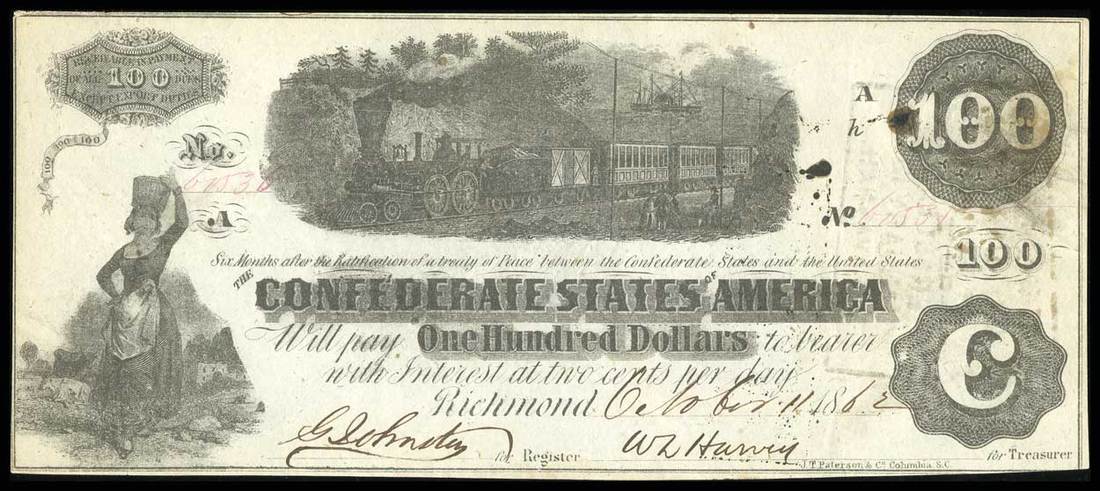 RECEIVABLE IN PAYMENT
OF ALL 100 DUES
EXCEPT EXPORT DUTIES
100 100 100
No.
A
A
h
100
No
100
Six Months after the Ratification of a treaty of Peace between the Confederate States and the United States
THE CONFEDERATE STATES OF AMERICA
Will pay One Hundred Dollars to bearer
with Interest at two cents per day
Richmond October 11 1862
C
for Register
for Treasurer
J.T. Paterson & Co Columbia, S.C.